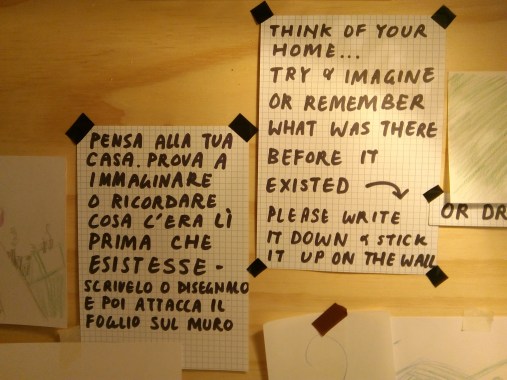 PENSA ALLA TUA
CASA. PROVA A
IMMAGINARE
O RICORDARE
COSA C'ERA LÌ
PRIMA CHE
ESISTESSE -
SCRIVELO O DISEGNALO
E POI ATTACCA IL
FOGLIO SUL MURO
THINK OF YOUR
HOME...
TRY & IMAGINE
OR REMEMBER
WHAT WAS THERE
BEFORE IT
EXISTED
PLEASE WRITE
IT DOWN & STICK
IT UP ON THE WALL
OR DR